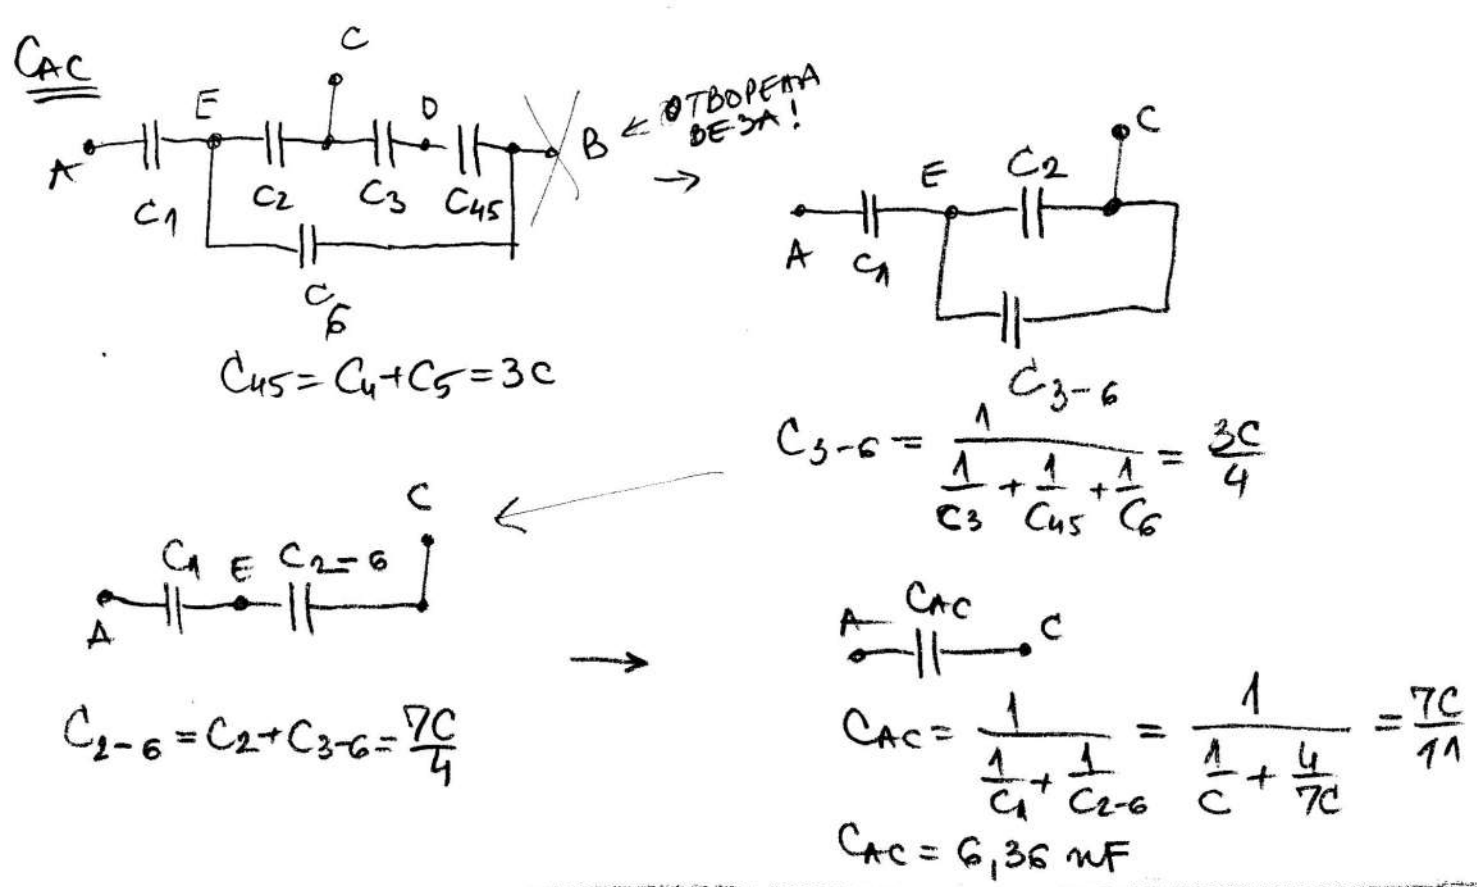 C_AC
C
E D
A B
← ОТВОРЕНА
ВЕЗА!
C1 C2 C3 C45
C6
→
C
E C2
A C1
C3-6
C45 = C4 + C5 = 3C
C3-6 = 1 / (1/C3 + 1/C45 + 1/C6) = 3C/4
←
C
C1 E C2-6
A
C2-6 = C2 + C3-6 = 7C/4
→
A C_AC C
C_AC = 1 / (1/C1 + 1/C2-6) = 1 / (1/C + 4/7C) = 7C/11
C_AC = 6,36 nF